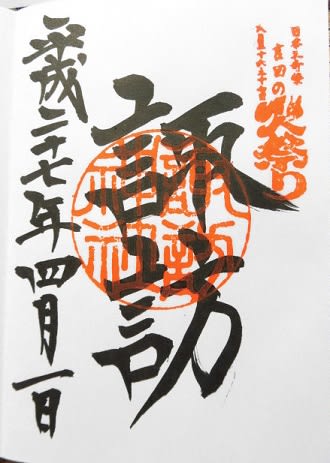 日本三奇祭
吉田の
火祭り
諏訪
諏訪
神社
平成二十七年四月一日